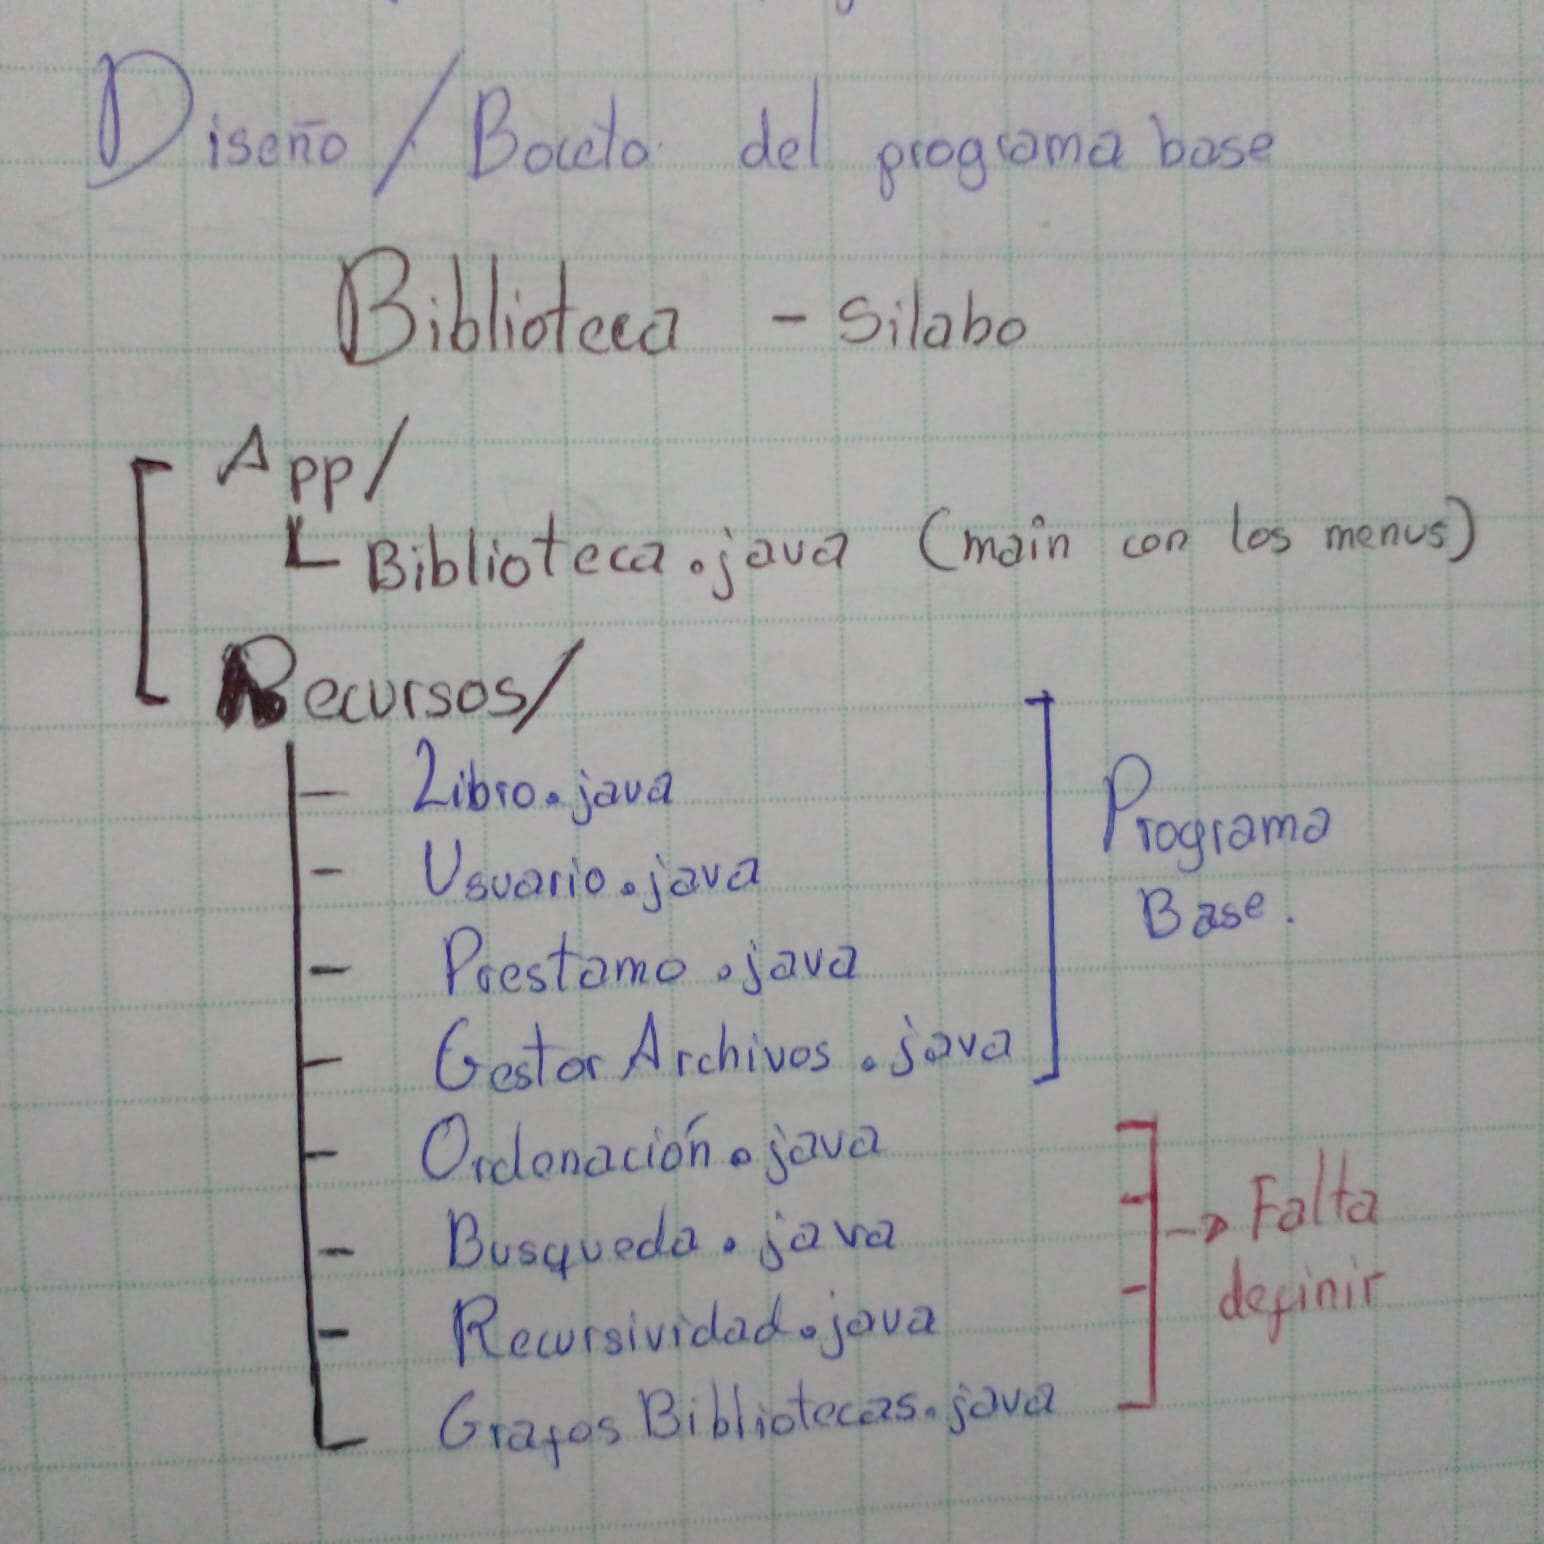 Diseño / Boceto del programa base
Biblioteca - Silabo
App/
Biblioteca.java (main con los menus)
Recursos/
- Libro.java
- Usuario.java
- Prestamo.java
- Gestor Archivos.java
Programa
Base.
- Ordenación.java
- Busqueda.java
- Recursividad.java
Grafos Bibliotecas.java
Falta
definir